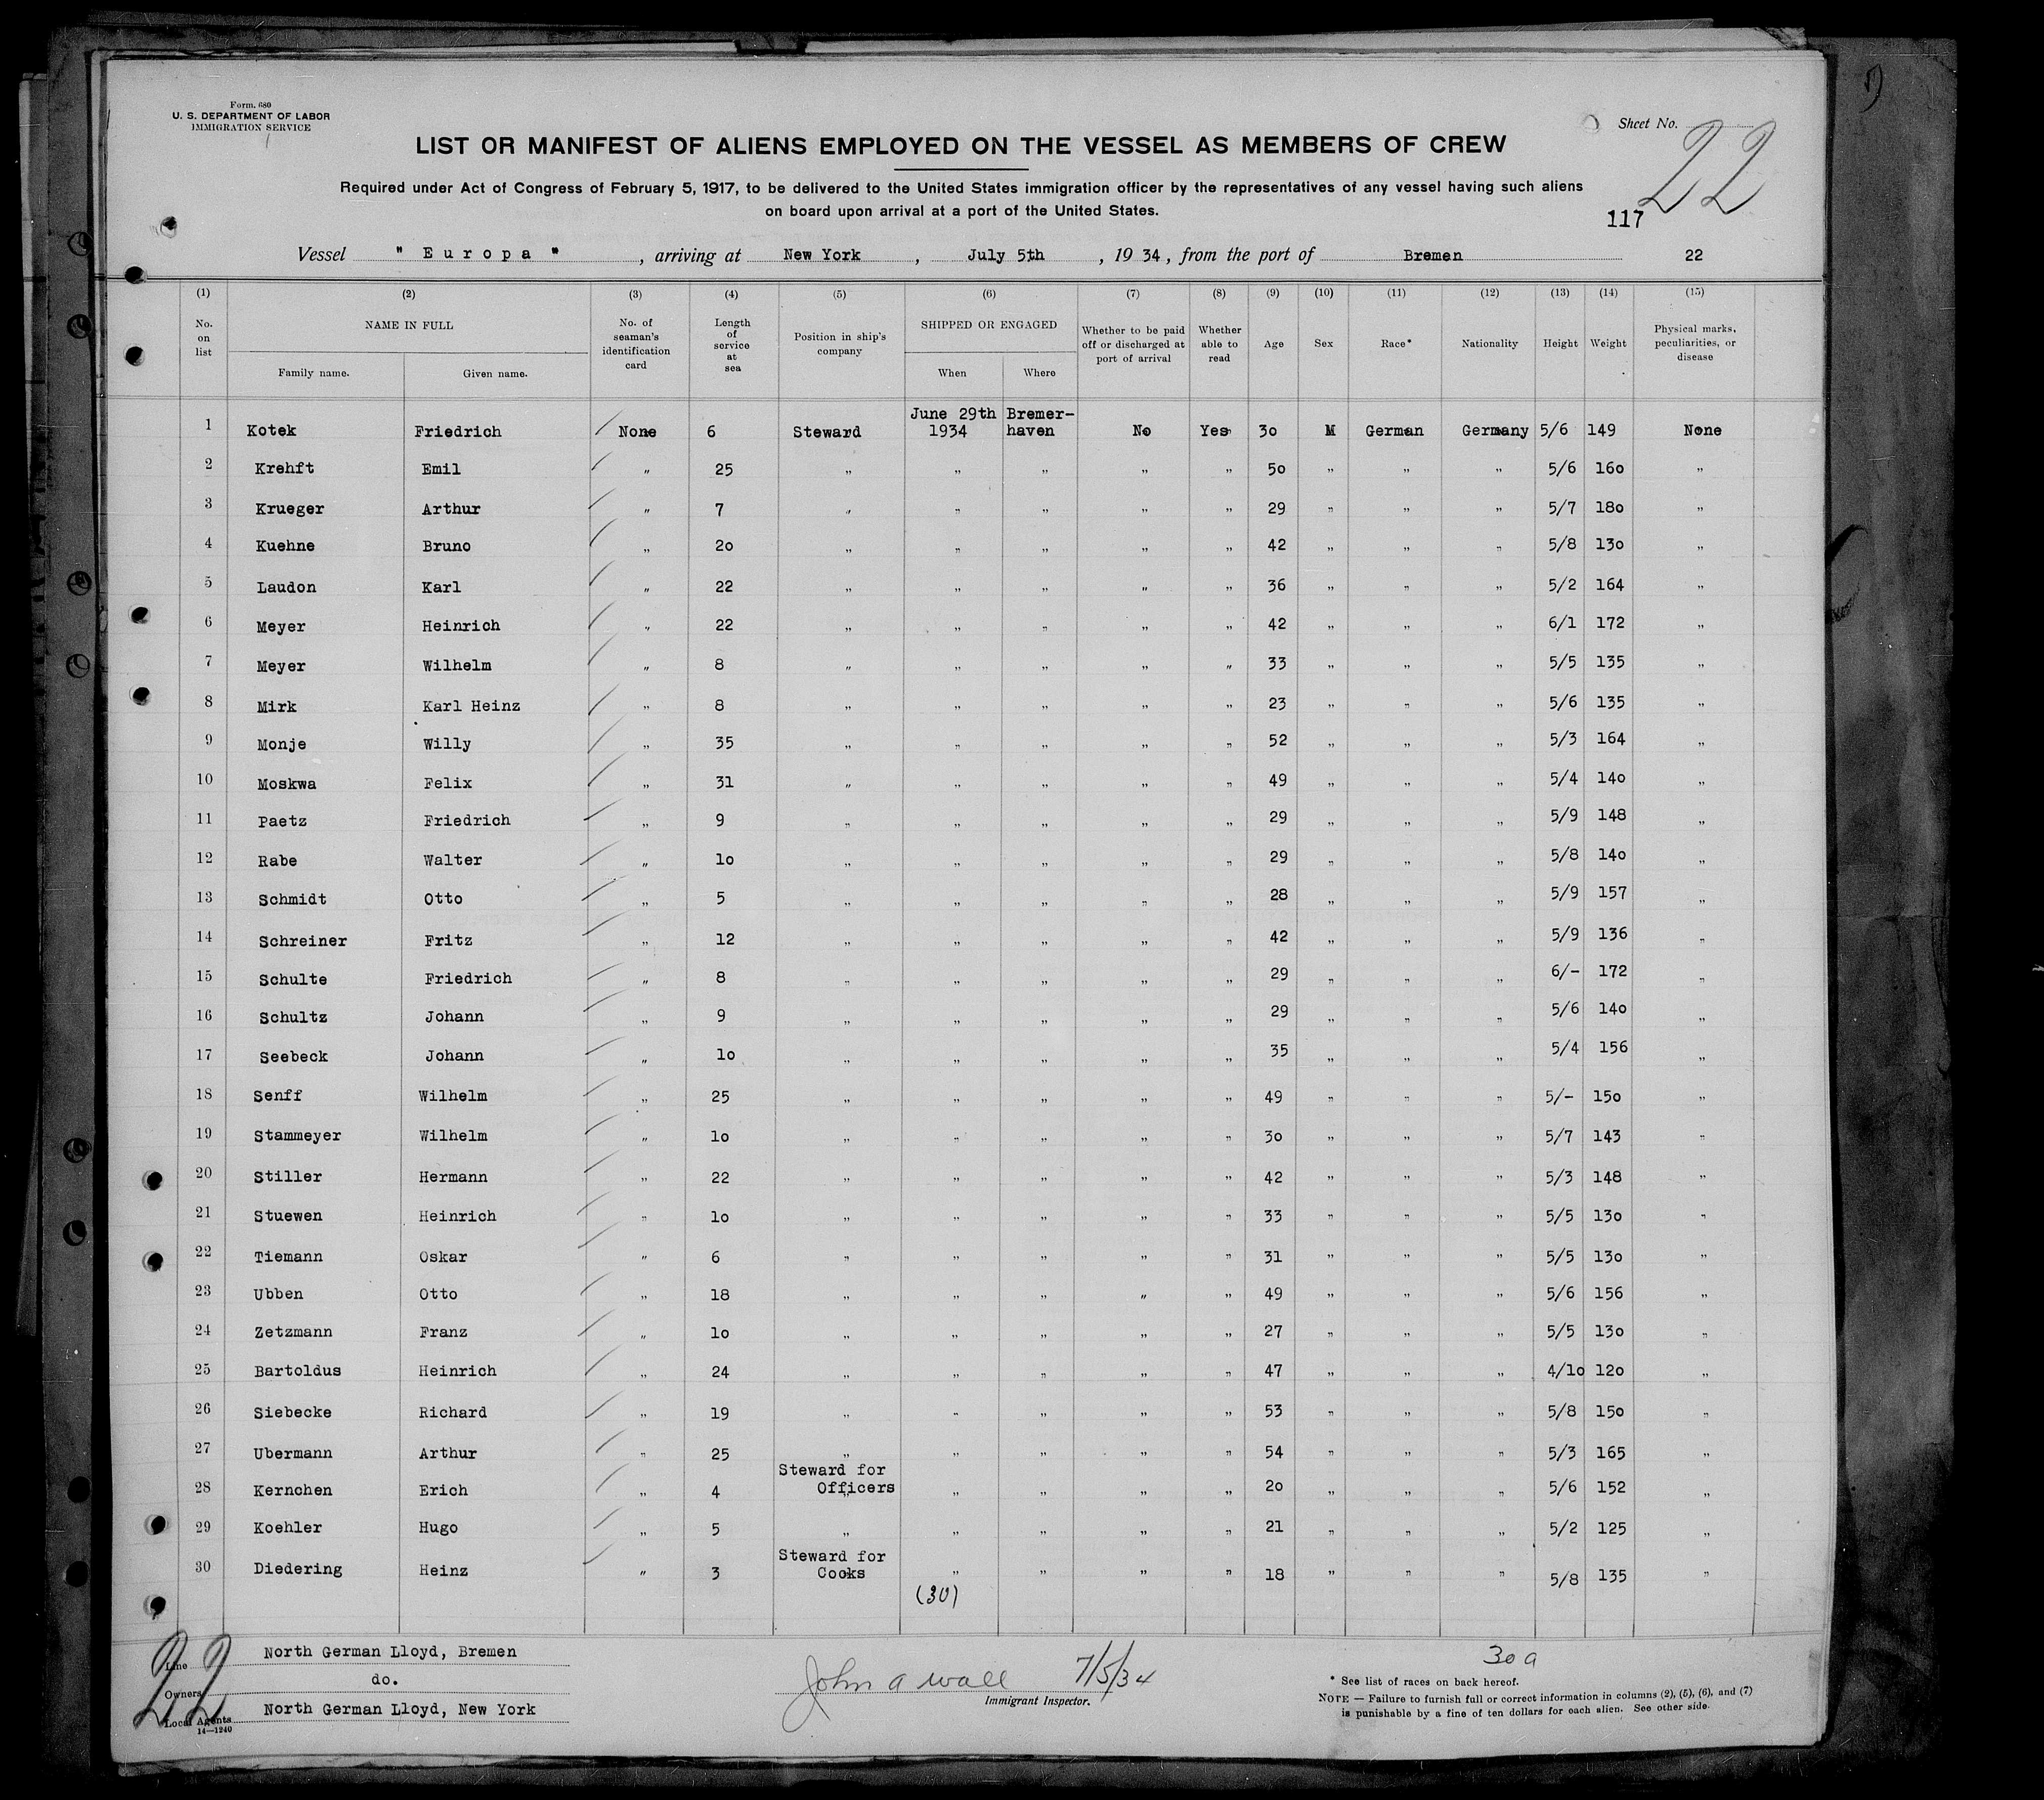 Form. 680
U. S. DEPARTMENT OF LABOR
IMMIGRATION SERVICE
Sheet No. 22
LIST OR MANIFEST OF ALIENS EMPLOYED ON THE VESSEL AS MEMBERS OF CREW
Required under Act of Congress of February 5, 1917, to be delivered to the United States immigration officer by the representatives of any vessel having such aliens
on board upon arrival at a port of the United States.
117
Vessel " Europa " , arriving at New York , July 5th , 1934, from the port of Bremen 22
(1) (2) (3) (4) (5) (6) (7) (8) (9) (10) (11) (12) (13) (14) (15)
No. on list NAME IN FULL Family name. Given name. No. of seaman's identification card Length of service at sea Position in ship's company SHIPPED OR ENGAGED When Where Whether to be paid off or discharged at port of arrival Whether able to read Age Sex Race* Nationality Height Weight Physical marks, peculiarities, or disease
1 Kotek Friedrich None 6 Steward June 29th 1934 Bremer-haven No Yes 30 M German Germany 5/6 149 None
2 Krehft Emil " 25 " " " " " 50 " " " 5/6 160 "
3 Krueger Arthur " 7 " " " " " 29 " " " 5/7 180 "
4 Kuehne Bruno " 20 " " " " " 42 " " " 5/8 130 "
5 Laudon Karl " 22 " " " " " 36 " " " 5/2 164 "
6 Meyer Heinrich " 22 " " " " " 42 " " " 6/1 172 "
7 Meyer Wilhelm " 8 " " " " " 33 " " " 5/5 135 "
8 Mirk Karl Heinz " 8 " " " " " 23 " " " 5/6 135 "
9 Monje Willy " 35 " " " " " 52 " " " 5/3 164 "
10 Moskwa Felix " 31 " " " " " 49 " " " 5/4 140 "
11 Paetz Friedrich " 9 " " " " " 29 " " " 5/9 148 "
12 Rabe Walter " 10 " " " " " 29 " " " 5/8 140 "
13 Schmidt Otto " 5 " " " " " 28 " " " 5/9 157 "
14 Schreiner Fritz " 12 " " " " " 42 " " " 5/9 136 "
15 Schulte Friedrich " 8 " " " " " 29 " " " 6/- 172 "
16 Schultz Johann " 9 " " " " " 29 " " " 5/6 140 "
17 Seebeck Johann " 10 " " " " " 35 " " " 5/4 156 "
18 Senff Wilhelm " 25 " " " " " 49 " " " 5/- 150 "
19 Stammeyer Wilhelm " 10 " " " " " 30 " " " 5/7 143 "
20 Stiller Hermann " 22 " " " " " 42 " " " 5/3 148 "
21 Stuewen Heinrich " 10 " " " " " 33 " " " 5/5 130 "
22 Tiemann Oskar " 6 " " " " " 31 " " " 5/5 130 "
23 Ubben Otto " 18 " " " " " 49 " " " 5/6 156 "
24 Zetzmann Franz " 10 " " " " " 27 " " " 5/5 130 "
25 Bartoldus Heinrich " 24 " " " " " 47 " " " 4/10 120 "
26 Siebecke Richard " 19 " " " " " 53 " " " 5/8 150 "
27 Ubermann Arthur " 25 " " " " " 54 " " " 5/3 165 "
28 Kernchen Erich " 4 Steward for Officers " " " " 20 " " " 5/6 152 "
29 Koehler Hugo " 5 " " " " " 21 " " " 5/2 125 "
30 Diedering Heinz " 3 Steward for Cooks " " " " 18 " " " 5/8 135 "
(30)
22
Line North German Lloyd, Bremen
Owners do.
Local Agents North German Lloyd, New York
14—1240
John A Wall 7/5/34
Immigrant Inspector.
30 a
* See list of races on back hereof.
NOTE — Failure to furnish full or correct information in columns (2), (5), (6), and (7)
is punishable by a fine of ten dollars for each alien. See other side.